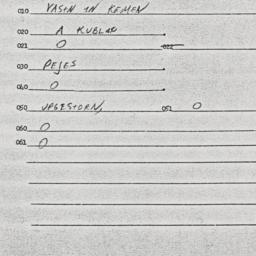 010 YASIN IN KEMEN
020 A KUBLAN
021 0 022
030 PEJES
040 0
050 UPGESTORN, 051 0
060 0
061 0